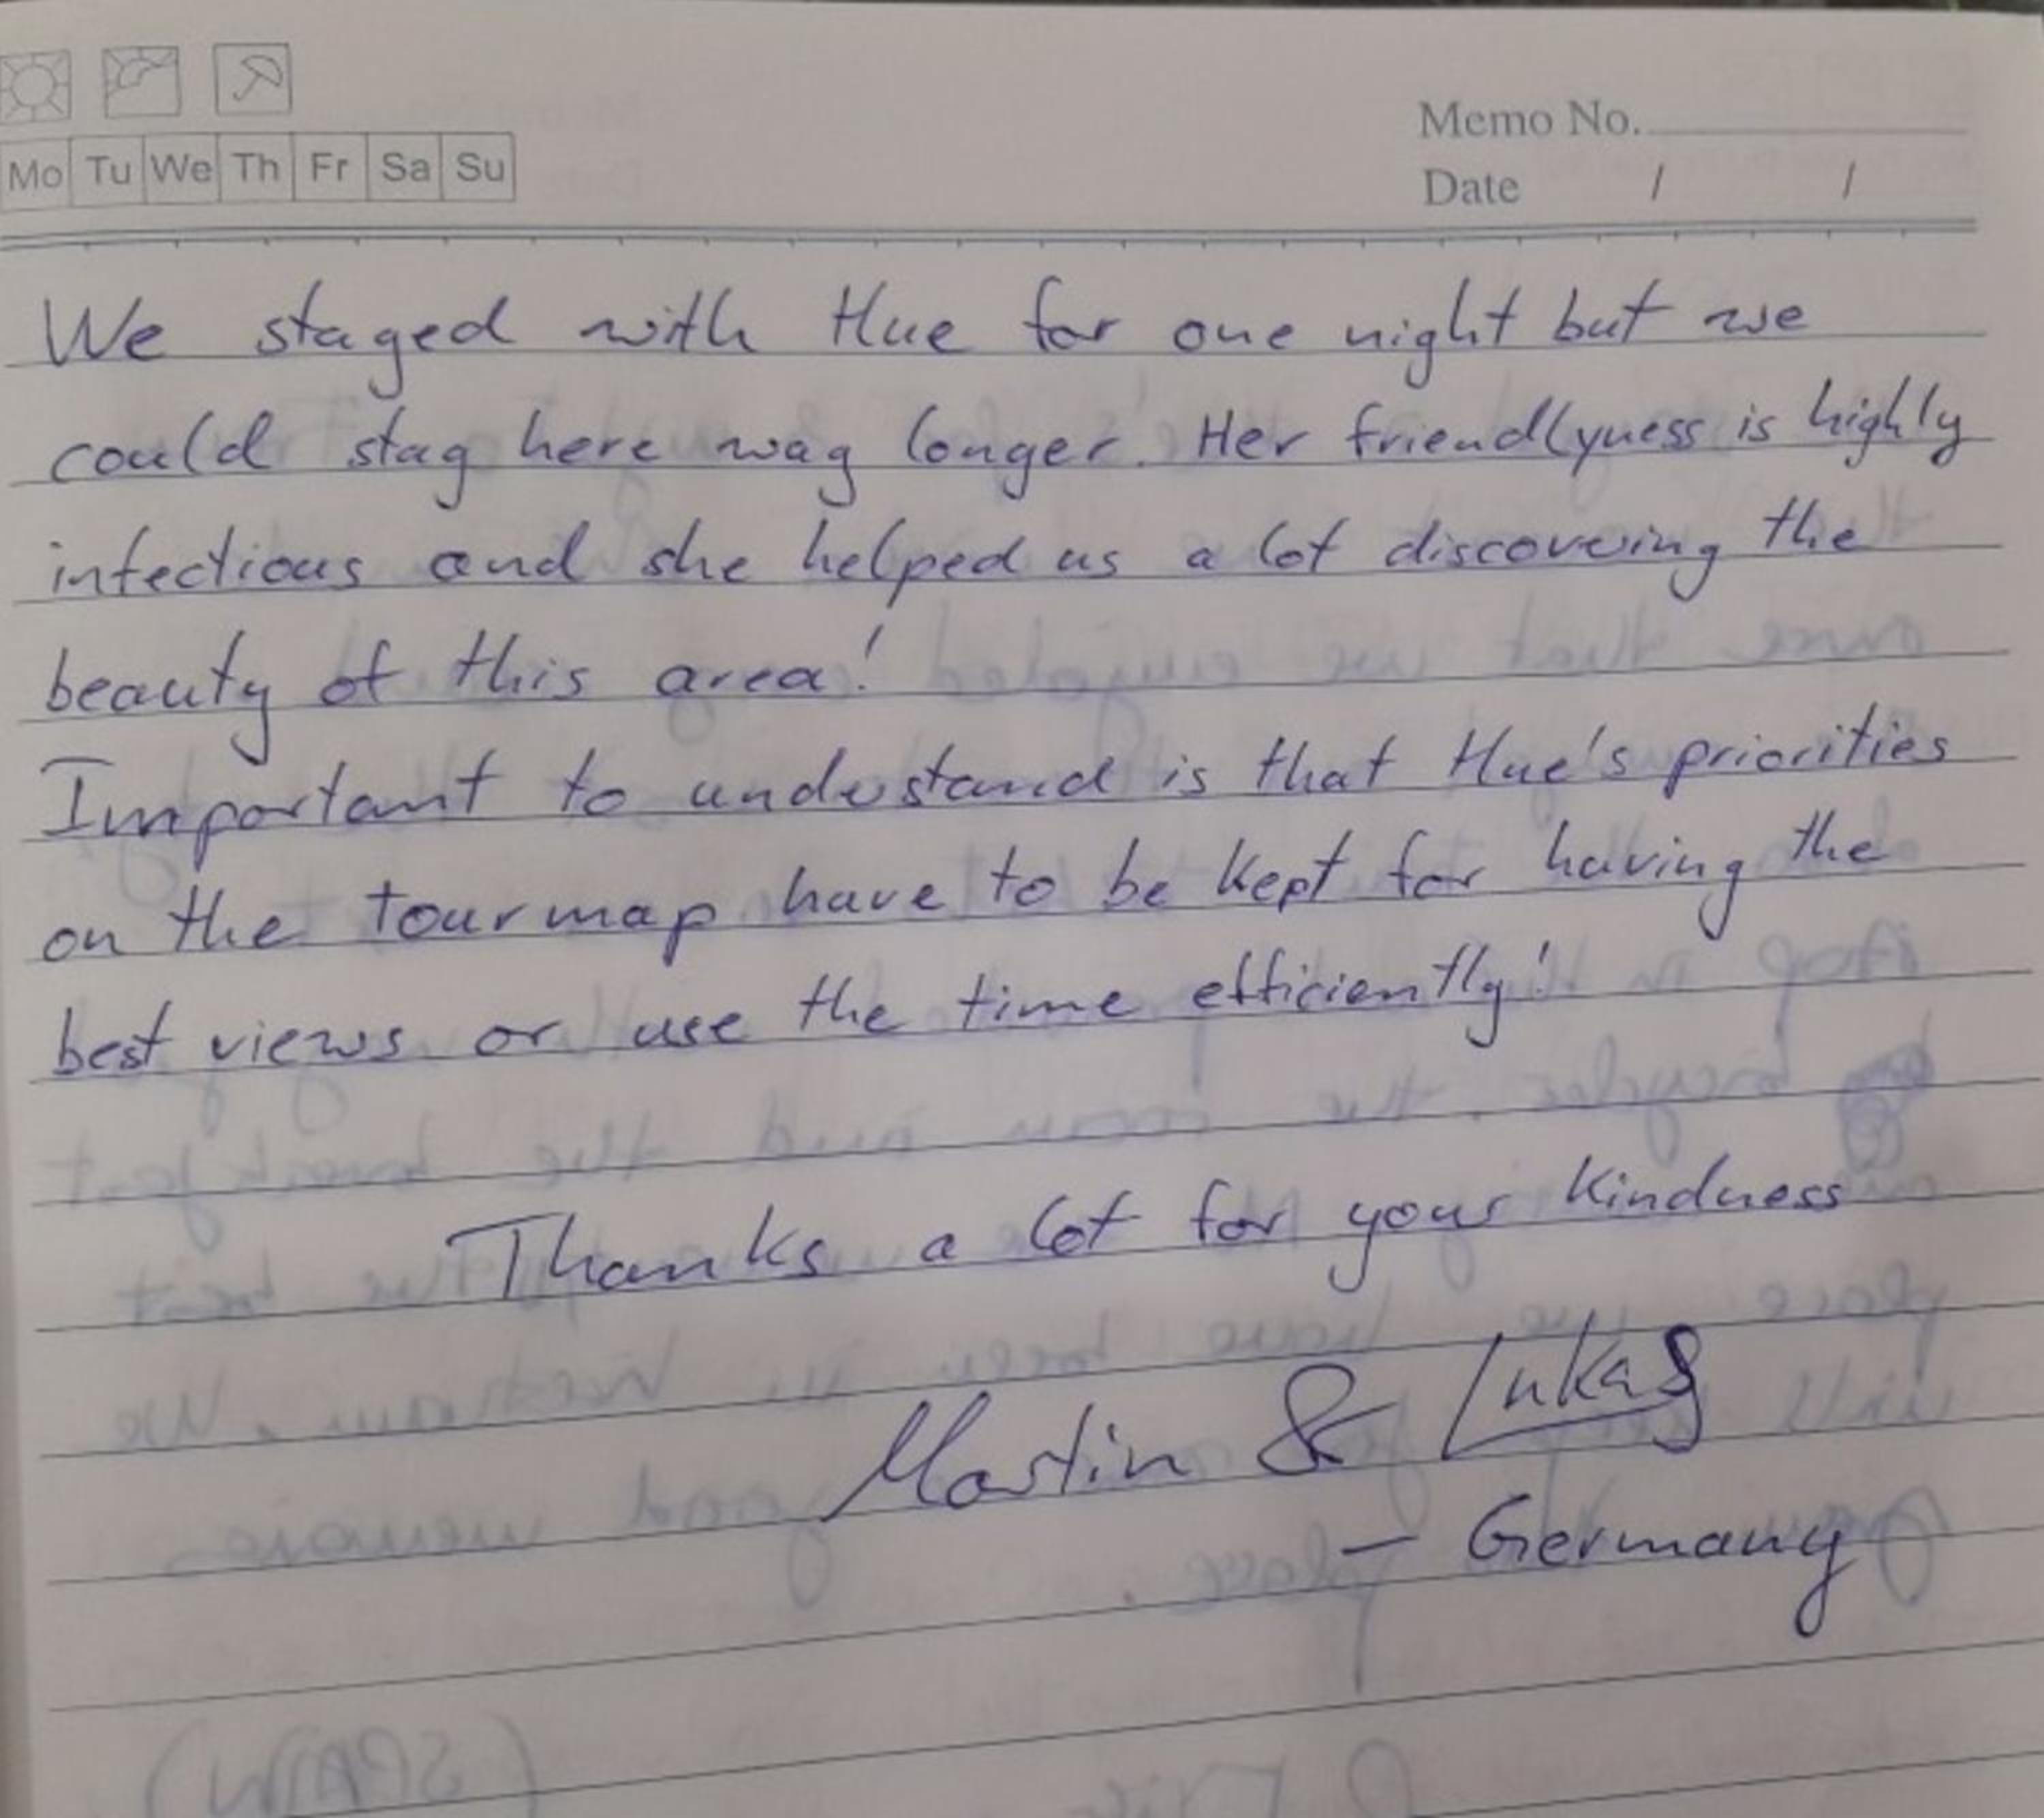 Mo Tu We Th Fr Sa Su
Memo No.
Date / /
We stayed with Hue for one night but we
could stay here way longer. Her friendlyness is highly
infectious and she helped us a lot discovering the
beauty of this area!
Important to understand is that Hue's priorities
on the tourmap have to be kept for having the
best views or use the time efficiently!
Thanks a lot for your kindness
Martin & Lukas
- Germany
(SPAIN)